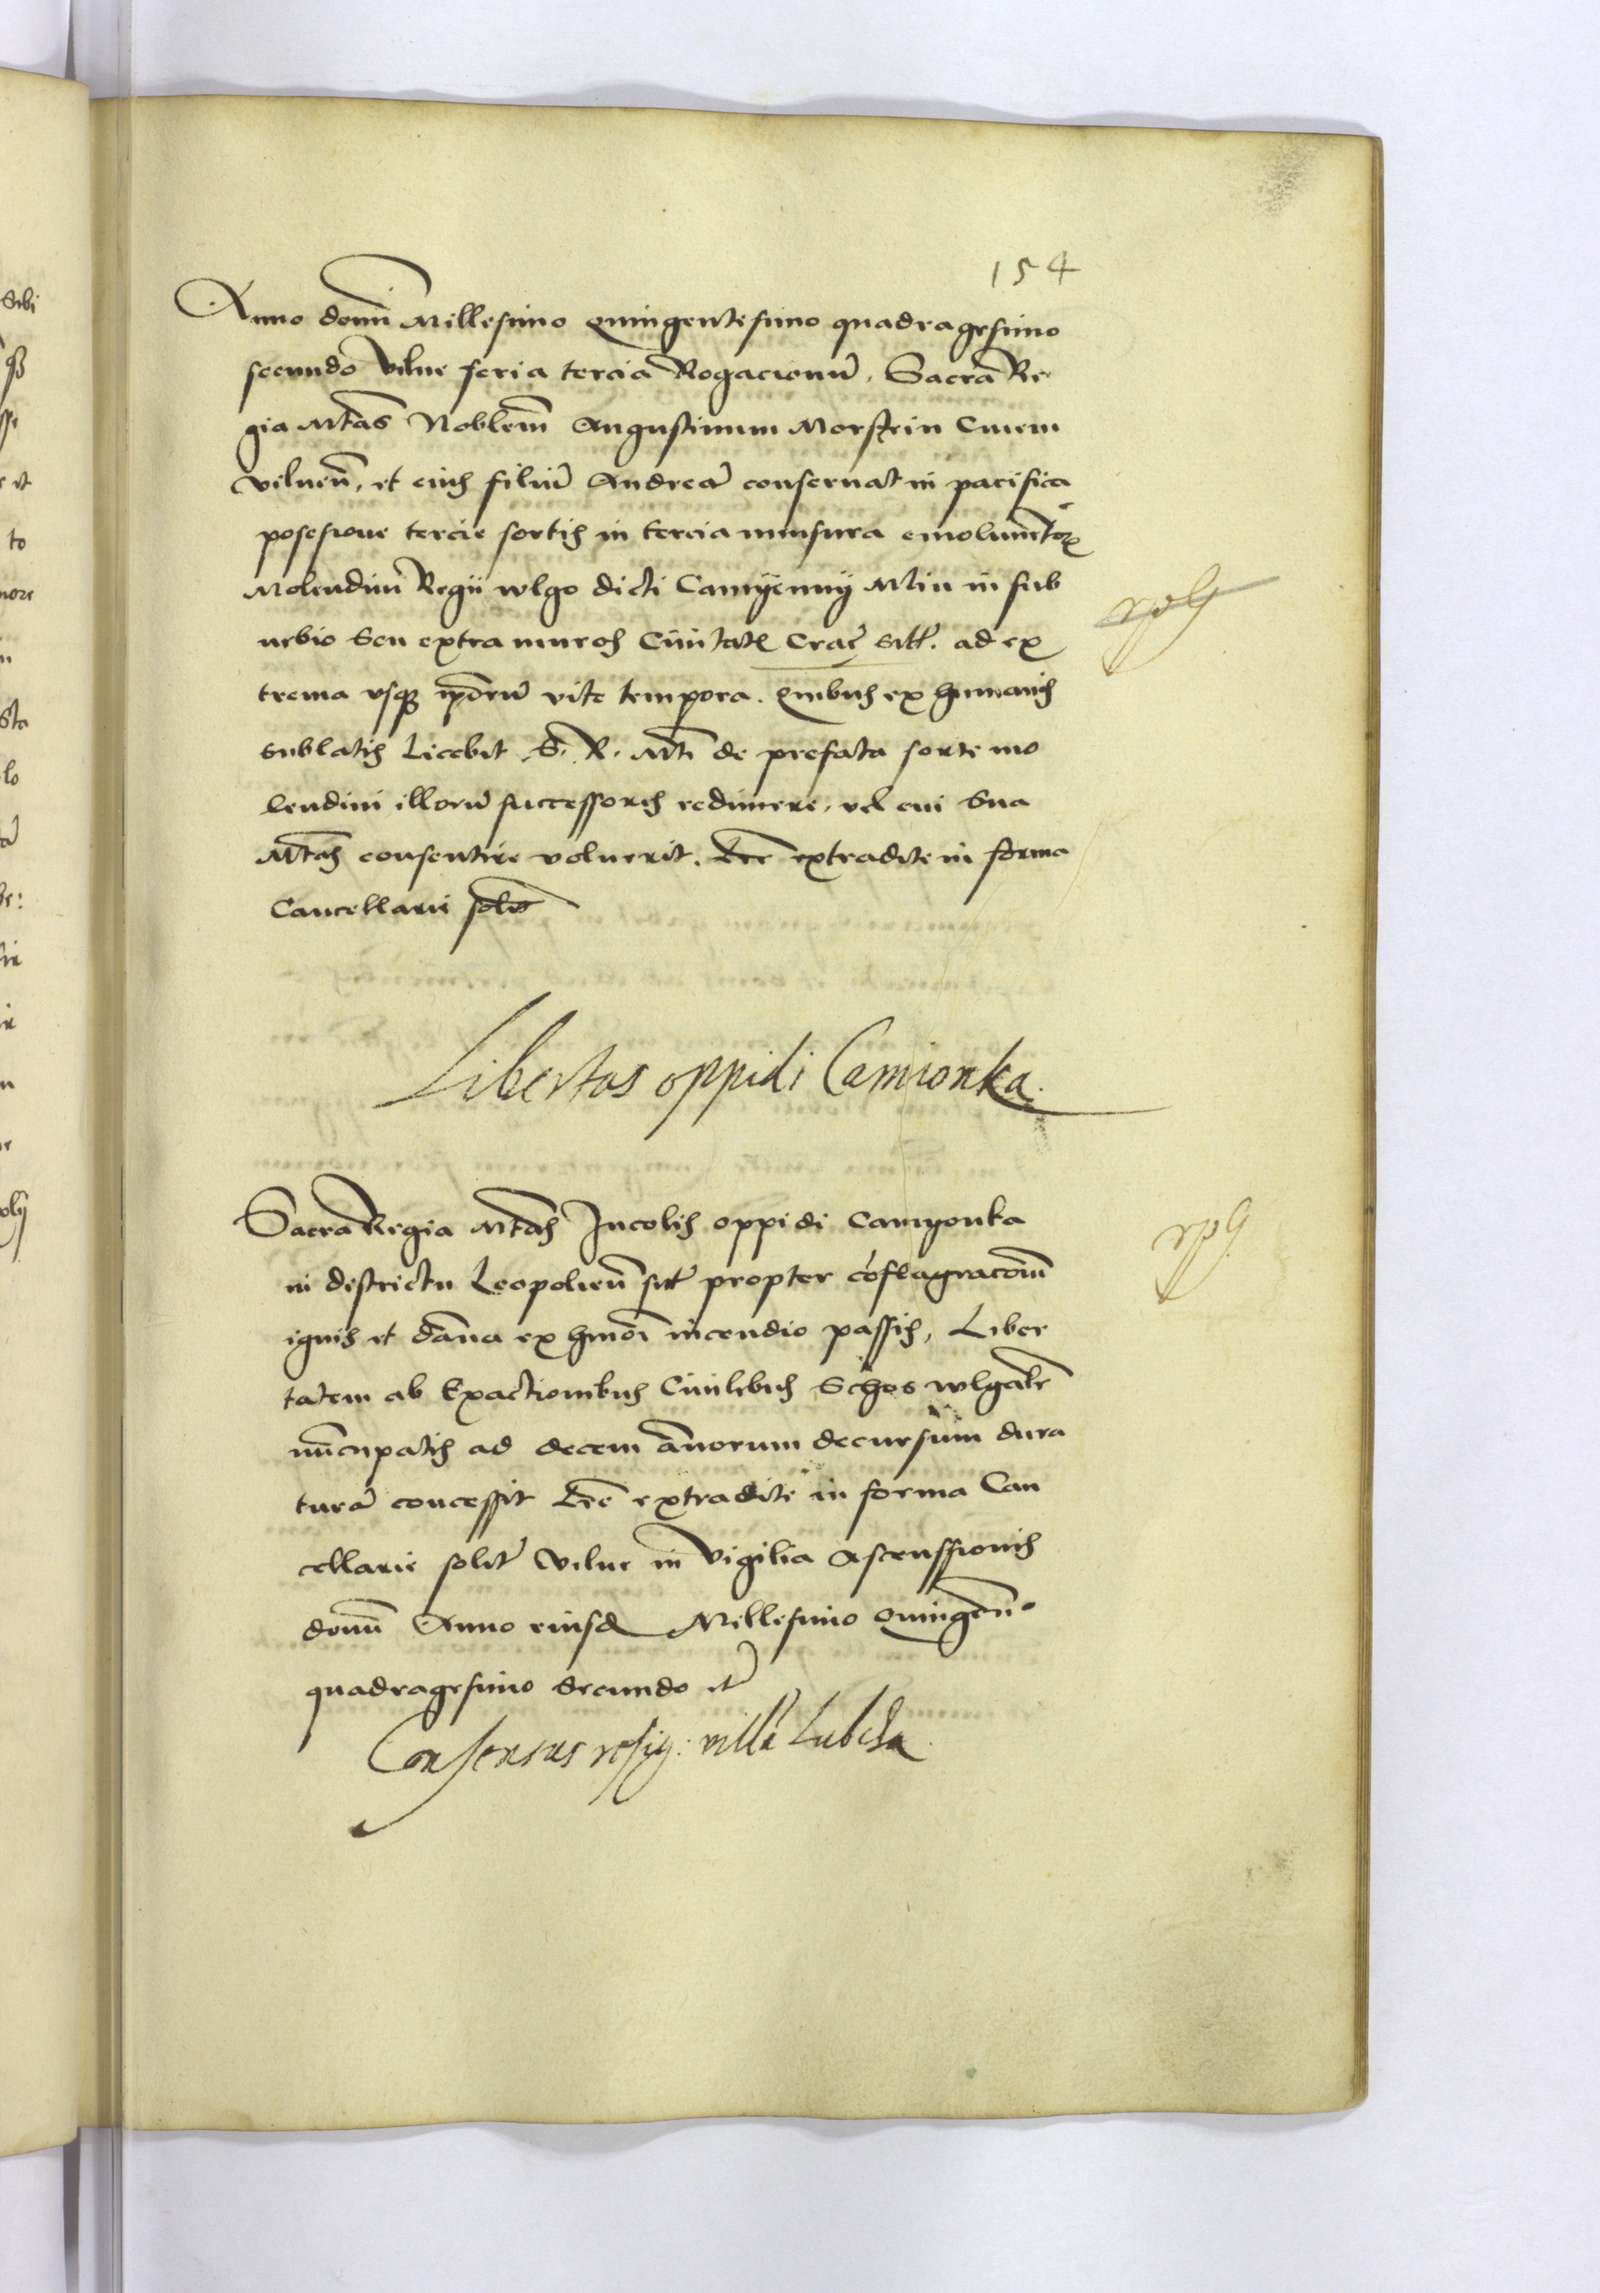 154
Anno domi Millesimo quingentesimo quadragesimo
secundo Vilne feria tercia Rogacionum. Sacra Re
gia Mtas Noblem Augustinum Morstein Ciuem
vilnen. et eius filium Andream conseruat in pacifica
posesione tercie sortis in tercia mensura emolumentor
Molendini Regii wlgo dicti Camyenny Mlin in sub
urbio seu extra muros Ciuitatis Crac sitt. ad ex
trema vsque ipsorum vite tempora. quibus ex humanis
sublatis Licebit S. R. Mti de prefata sorte mo
lendini illorum successores redimere, vel cui sua
Mtas consentire voluerit. Lre extradite in forma
Cancellarie
Libertas oppidi Camionka.
Sacra Regia Mtas Incolis oppidi Camyonka
in districtu Leopolien sitt propter coflagracom
ignis et dana ex hmoi incendio passis, Liber
tatem ab Exactionibus Ciuilibus Schos wlgaler
nucupatis ad decem anorum decursum dura
turam concessit Lre extradite in forma Can
cellarie solit Vilne in Vigilia Ascenssionis
domi Anno eiusd Millesimo quingen°
quadragesimo secundo et
Consensus resig: villa